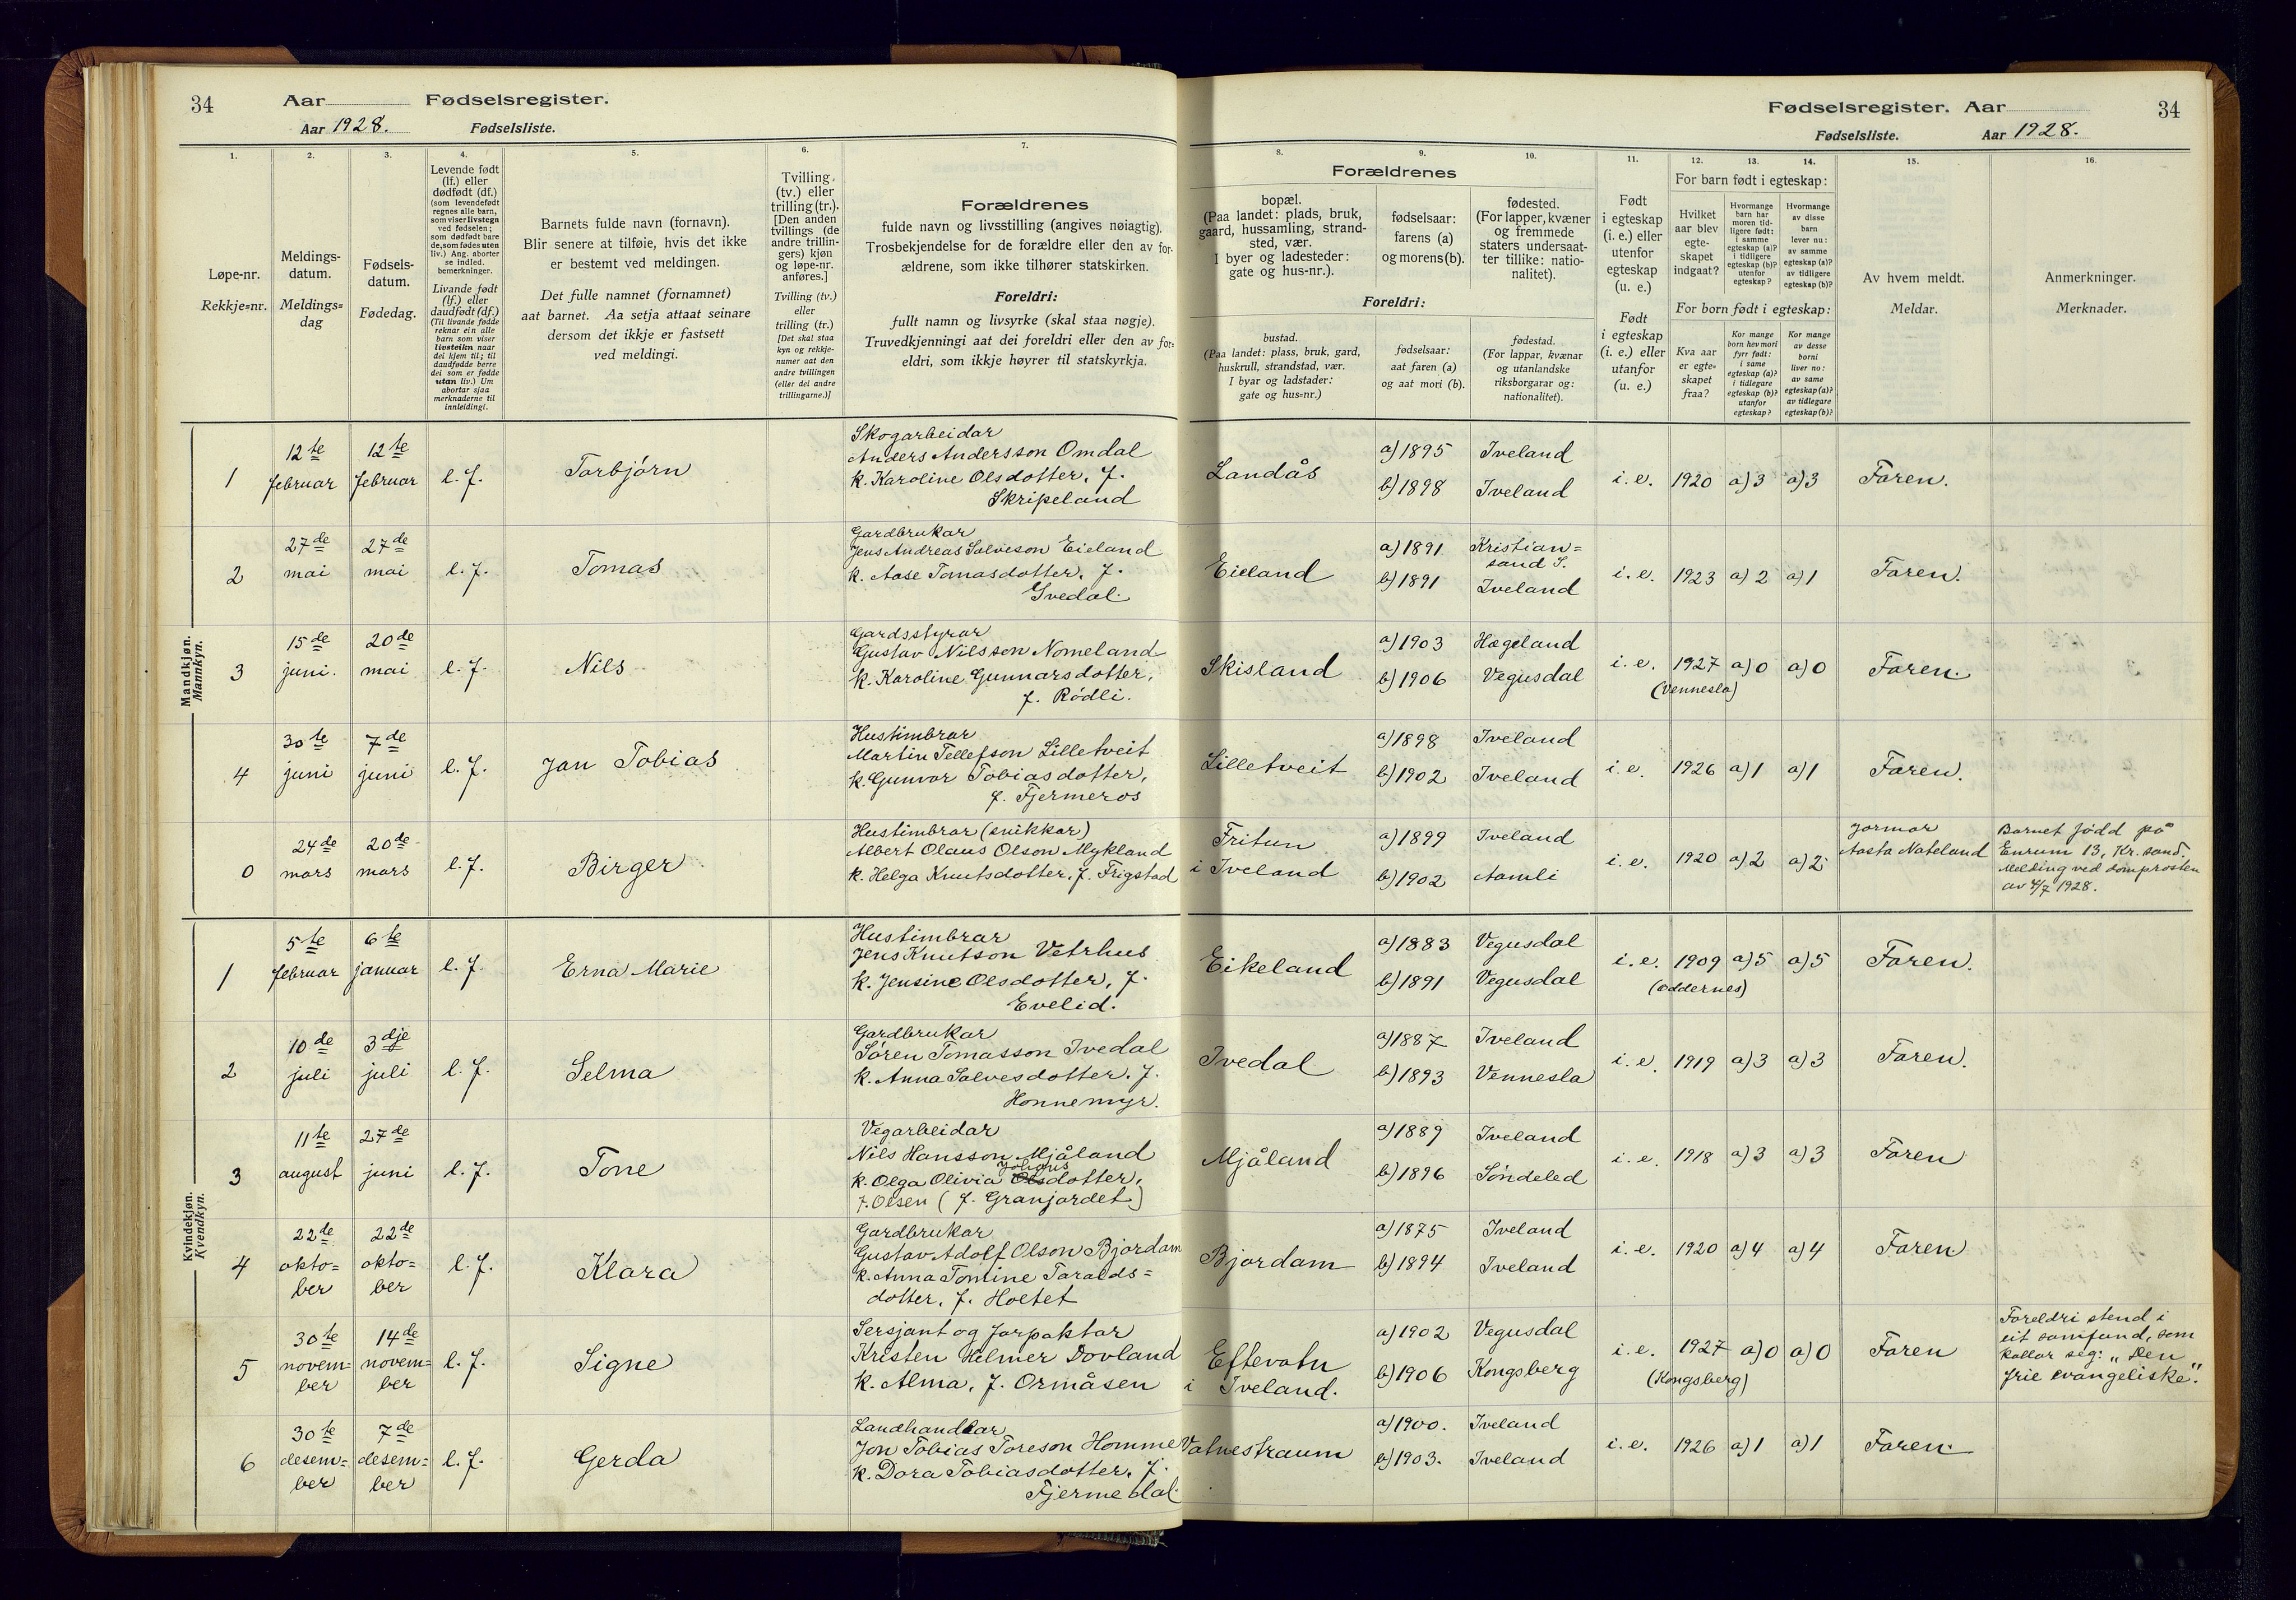 34
Aar Fødselsregister.
Aar 1928. Fødselsliste.
Fødselsregister. Aar
34
Fødselsliste. Aar 1928.
1.
Løpe-nr.
Rekkje=nr.
2.
Meldings-
datum.
Meldings=
dag
3.
Fødsels-
datum.
Fødedag.
4.
Levende født
(lf.) eller
dødfødt (df.)
(som levendefødt
regnes alle barn,
som viser livstegn
ved fødselen;
som dødfødt bare
de, som fødes uten
liv.) Ang. aborter
se indled.
bemerkninger.
Livande født
(lf.) eller
daudfødt (df.)
(Til livande fødde
reknar ein alle
barn som viser
livsteikn naar
dei kjem til; til
daudfødde berre
dei som er fødde
utan liv.) Um
abortar sjaa
merknaderne til
innleidingi.
5.
Barnets fulde navn (fornavn).
Blir senere at tilføie, hvis det ikke
er bestemt ved meldingen.
Det fulle namnet (fornamnet)
aat barnet. Aa setja attaat seinare
dersom det ikkje er fastsett
ved meldingi.
6.
Tvilling
(tv.) eller
trilling (tr.).
[Den anden
tvillings (de
andre trillin-
gers) kjøn
og løpe-nr.
anføres.]
Tvilling (tv.)
eller
trilling (tr.)
[Det skal staa
kyn og rekkje-
numer aat den
andre tvillingen
(eller dei andre
trillingarne.)]
7.
Forældrenes
fulde navn og livsstilling (angives nøiagtig).
Trosbekjendelse for de forældre eller den av for-
ældrene, som ikke tilhører statskirken.
Foreldri:
fullt namn og livsyrke (skal staa nøgje).
Truvedkjenningi aat dei foreldri eller den av for-
eldri, som ikkje høyrer til statskyrkja.
8.
Forældrenes
bopæl.
(Paa landet: plads, bruk,
gaard, hussamling, strand-
sted, vær.
I byer og ladesteder:
gate og hus-nr.).
Foreldri:
bustad.
(Paa landet: plass, bruk, gard,
huskrull, strandstad, vær.
I byar og ladstader:
gate og hus=nr.)
9.
fødselsaar:
farens (a)
og morens (b).
fødselsaar:
aat faren (a)
og aat mori (b).
10.
fødested.
(For lapper, kvæner
og fremmede
staters undersaat-
ter tillike: natio-
nalitet).
fødestad.
(For lappar, kvænar
og utanlandske
riksborgarar og:
nationalitet).
11.
Født
i egteskap
(i. e.) eller
utenfor
egteskap
(u. e.)
Født
i egteskap
(i. e.) eller
utanfor
(u. e.)
For barn født i egteskap:
12.
Hvilket
aar blev
egte-
skapet
indgaat?
For born født i egteskap:
Kva aar
er egte=
skapet
fraa?
13.
Hvormange
barn har
moren tid-
ligere født:
i samme
egteskap (a)?
utenfor
egteskap ?
Kor mange
born hev mori
fyrr født:
i same
egteskap (a)?
i tidlegare
egteskap (b)?
utanfor
egteskap?
14.
Hvormange
av disse
barn
lever nu:
av samme
egteskap (a)?
av tidligere
egteskap (b)?
Kor mange
av desse
borni
liver no:
av same
egteskap (a)?
av tidlegare
egteskap (b)?
15.
Av hvem meldt.
Meldar.
16.
Anmerkninger.
Merknader.
Mandkjøn.
Mannkyn.
1 12te februar 12te februar l. f. Torbjörn
Skogarbeidar
Anders Andersson Omdal
k. Karoline Olsdotter, f.
Skripeland
Landås a) 1895 Iveland
b) 1898 Iveland
i. e. 1920 a) 3 a) 3 Faren.
2 27de mai 27de mai l. f. Tomas
Gardbrukar
Jens Andreas Salveson Eieland
k. Aase Tomasdotter, f.
Ivedal.
Eieland a) 1891 Kristian=
sand S.
b) 1891 Iveland
i. e. 1923 a) 2 a) 1 Faren.
3 15de juni. 20de mai l. f. Nils
Gardsstyrar
Gustav Nilsson Nomeland
k. Karoline Gunnarsdotter,
f. Rödli.
Skisland a) 1903 Hægeland
b) 1906 Vegusdal
i. e. 1927 (Vennesla) a) 0 a) 0 Faren.
4 30te juni 7de juni l. f. Jan Tobias
Hustimbrar
Martin Tellefson Lilletveit
k. Gunvor Tobiasdotter,
f. Fjermeros
Lilletveit a) 1898 Iveland
b) 1902 Iveland
i. e. 1926 a) 1 a) 1 Faren.
0 24de mars 20de mars l. f. Birger
Hustimbrar (snikkar)
Albert Olaus Olson Mykland
k. Helga Knutsdotter, f. Frigstad
Fritun
i Iveland
a) 1899 Iveland
b) 1902 Aamli
i. e. 1920 a) 2 a) 2
Jormor
Aasta Nateland
Barnet född på
Enrum 13, Kr.sand.
Melding ved domprosten
av 4/7 1928.
Kvindekjøn.
Kvendkyn.
1 5te februar 6te januar l. f. Erna Marie
Hustimbrar
Jens Knutson Vetrhus
k. Jensine Olsdotter, f.
Evelid.
Eikeland a) 1883 Vegusdal
b) 1891 Vegusdal
i. e. 1909 (Oddernes) a) 5 a) 5 Faren.
2 10de juli 3dje juli l. f. Selma
Gardbrukar
Sören Tomasson Ivedal
k. Anna Salvesdotter, f.
Honnemyr.
Ivedal a) 1887 Iveland
b) 1893 Vennesla
i. e. 1919 a) 3 a) 3 Faren.
3 11te august 27de juni l. f. Tone
Vegarbeidar
Nils Hansson Mjåland
k. Olga Olivia Olsdotter,
f. Olsen ( f. Granjordet)
Mjåland a) 1889 Iveland
b) 1896 Söndeled
i. e. 1918 a) 3 a) 3 Faren
4 22de okto=ber 22de okto=ber l. f. Klara
Gardbrukar
Gustav Adolf Olson Bjordam
k. Anna Tomine Taralds=
dotter, f. Holtet
Bjordam a) 1875 Iveland
b) 1894 Iveland
i. e. 1920 a) 4 a) 4 Faren
5 30te novem=ber 14de novem=ber l. f. Signe
Sersjant og forpaktar
Kristen Helmer Dovland
k. Alma, f. Ormåsen
Eftevatn
i Iveland.
a) 1902 Vegusdal
b) 1906 Kongsberg
i. e. 1927 (Kongsberg) a) 0 a) 0 Faren
Foreldri stend i
eit samfund, som
kallar seg: „Den
frie evangeliske".
6 30te desem=ber 7de desem=ber l. f. Gerda
Landhandlar
Jon Tobias Toreson Homme
k. Dora Tobiasdotter, f.
Fjermedal.
Vatnestraum a) 1900. Iveland
b) 1903. Iveland
i. e. 1926 a) 1 a) 1 Faren.